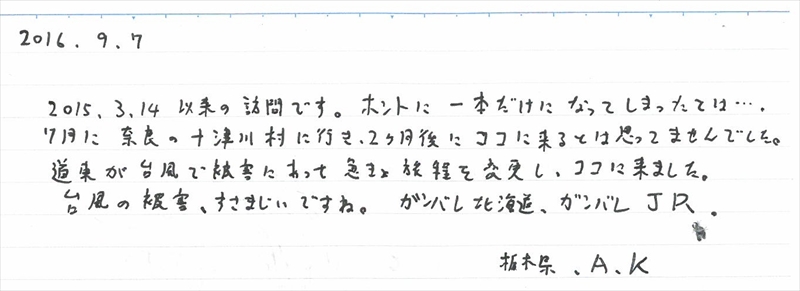 2016.9.7
2015.3.14 以来の訪問です。ホントに一本だけになってしまったとは….
7月に奈良の十津川村に行き、2ヶ月後にココに来るとは思ってませんでした。
道東が台風で被害にあって急きょ旅程を変更し、ココに来ました。
台風の被害、すさまじいですね。ガンバレ北海道、ガンバレJR.
栃木県、A.K